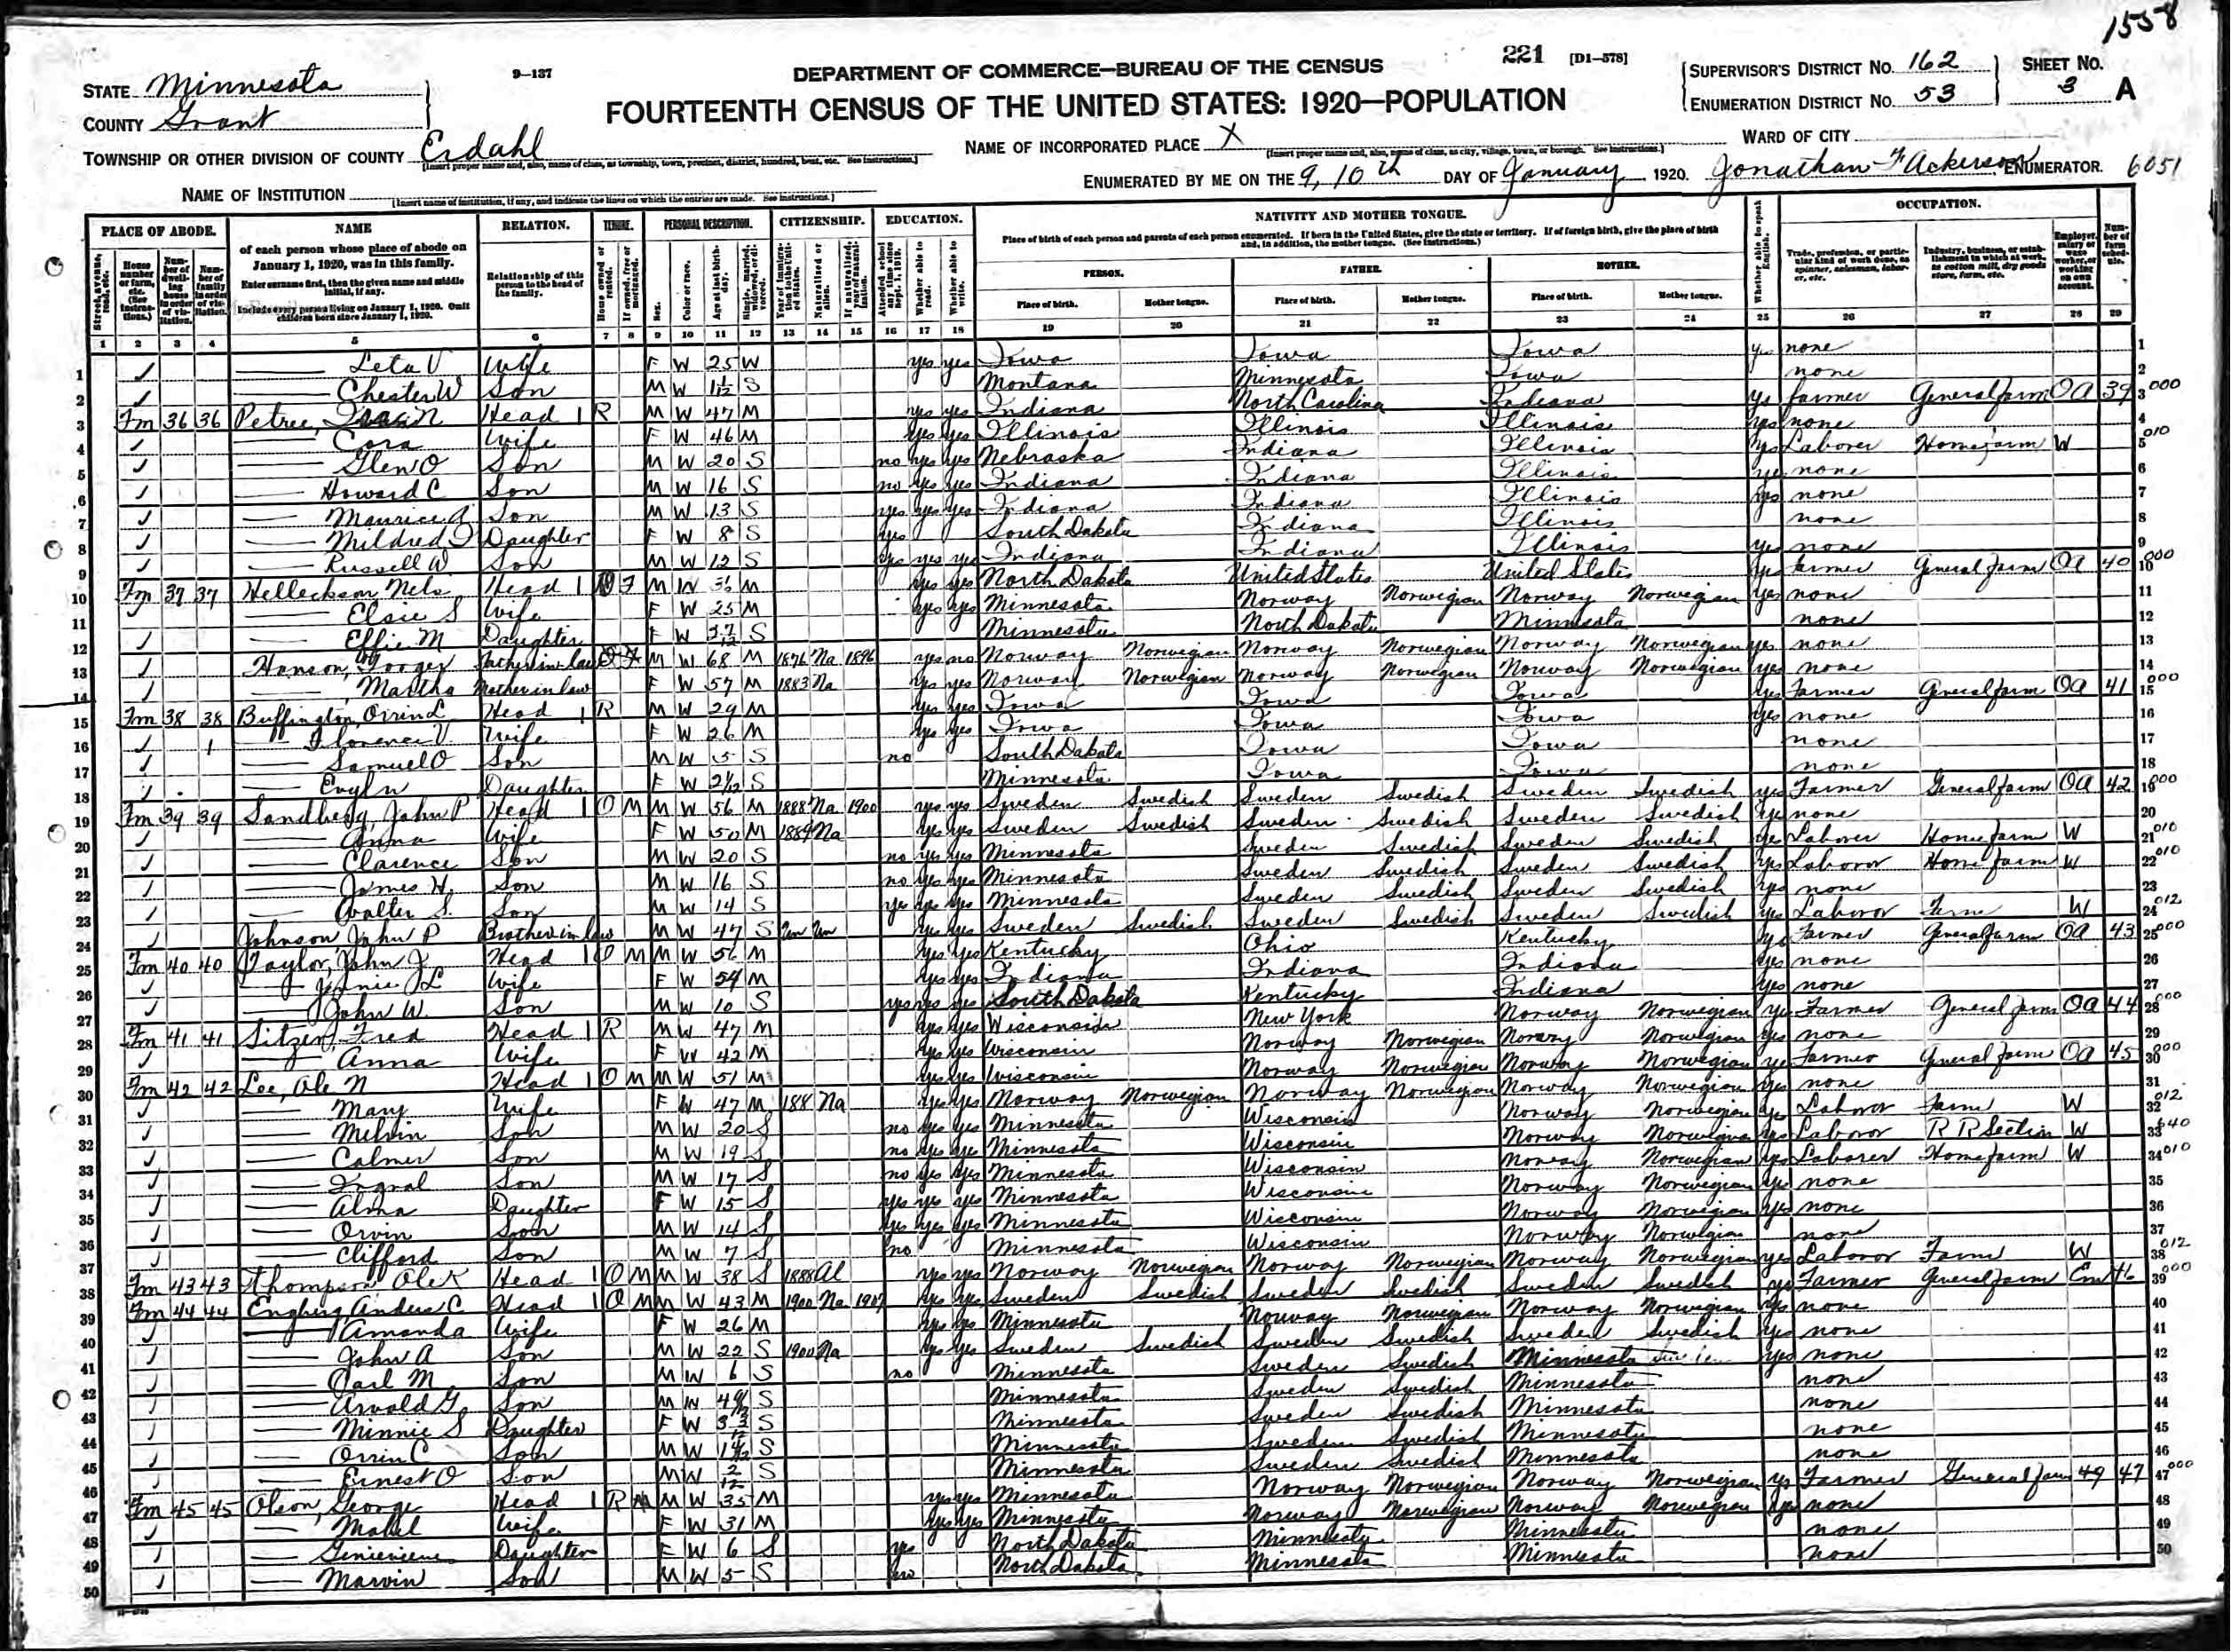 1558
STATE Minnesota
9—137
DEPARTMENT OF COMMERCE—BUREAU OF THE CENSUS
221 [D1—578]
SUPERVISOR'S DISTRICT NO. 162
SHEET NO.
COUNTY Grant
FOURTEENTH CENSUS OF THE UNITED STATES: 1920—POPULATION
ENUMERATION DISTRICT NO. 53
3 A
TOWNSHIP OR OTHER DIVISION OF COUNTY Erdahl
NAME OF INCORPORATED PLACE X
WARD OF CITY
NAME OF INSTITUTION
ENUMERATED BY ME ON THE 9, 10th DAY OF January, 1920. Jonathan F Ackerson, ENUMERATOR. 6051
PLACE OF ABODE. NAME RELATION. TENURE. PERSONAL DESCRIPTION. CITIZENSHIP. EDUCATION. NATIVITY AND MOTHER TONGUE. OCCUPATION.
of each person whose place of abode on January 1, 1920, was in this family.
Enter surname first, then the given name and middle initial, if any.
Include every person living on January 1, 1920. Omit children born since January 1, 1920.
Relationship of this person to the head of the family.
Place of birth of each person and parents of each person enumerated. If born in the United States, give the state or territory. If of foreign birth, give the place of birth and, in addition, the mother tongue. (See instructions.)
PERSON. FATHER. MOTHER.
Place of birth. Mother tongue. Place of birth. Mother tongue. Place of birth. Mother tongue.
1 2 3 4 5 6 7 8 9 10 11 12 13 14 15 16 17 18 19 20 21 22 23 24 25 26 27 28 29
1 Leta V Wife F W 25 W yes yes Iowa Iowa Iowa yes none 1
2 Chester W Son M W 1 S Montana Minnesota Iowa none 2
3 Fm 36 36 Petree, Head 1 R M W 47 M yes yes Indiana North Carolina Indiana yes farmer General farm OA 39 3
4 Cora Wife F W 46 M yes yes Illinois Illinois Illinois yes none 4
5 Glen O Son M W 20 S no yes yes Nebraska Indiana Illinois yes Laborer Home farm W 5
6 Howard C Son M W 16 S no yes yes Indiana Indiana Illinois yes none 6
7 Maurice A Son M W 13 S yes yes yes Indiana Indiana Illinois yes none 7
8 Mildred I Daughter F W 8 S yes South Dakota Indiana Illinois none 8
9 Russell W Son M W 12 S yes yes yes Indiana Indiana Illinois yes none 9
10 Fm 37 37 Helleckson Nels Head 1 M W M yes yes North Dakota United States United States yes Farmer General farm OA 40 10
11 Elsie S Wife F W 25 M yes yes Minnesota Norway Norwegian Norway Norwegian yes none 11
12 Effie M Daughter F W S Minnesota North Dakota Minnesota none 12
13 Hanson, Father in law M W 68 M 1876 Na 1896 yes no Norway Norwegian Norway Norwegian Norway Norwegian yes none 13
14 Martha Mother in law F W 57 M 1883 Na yes yes Norway Norwegian Norway Norwegian Norway Norwegian yes none 14
15 Fm 38 38 Buffington, Orrin L Head 1 R M W 29 M yes yes Iowa Iowa Iowa yes Farmer General farm OA 41 15
16 Florence V Wife F W 26 M yes yes Iowa Iowa Iowa yes none 16
17 Samuel O Son M W 5 S no South Dakota Iowa Iowa none 17
18 Evyln Daughter F W 2 S Minnesota Iowa Iowa none 18
19 Fm 39 39 Sandberg, John P Head 1 O M M W 56 M 1888 Na 1900 yes yes Sweden Swedish Sweden Swedish Sweden Swedish yes Farmer General farm OA 42 19
20 Anna Wife F W 50 M 1889 Na yes yes Sweden Swedish Sweden Swedish Sweden Swedish yes none 20
21 Clarence Son M W 20 S no yes yes Minnesota Sweden Swedish Sweden Swedish yes Laborer Home farm W 21
22 James H. Son M W 16 S no yes yes Minnesota Sweden Swedish Sweden Swedish yes Laboror Home farm W 22
23 Walter S. Son M W 14 S yes yes yes Minnesota Sweden Swedish Sweden Swedish yes none 23
24 Johnson, John P Brother in law M W 47 S Un Un yes yes Sweden Swedish Sweden Swedish Sweden Swedish yes Laboror Farm W 24
25 Fm 40 40 Taylor, John J. Head 1 O M M W 56 M yes yes Kentucky Ohio Kentucky yes Farmer General farm OA 43 25
26 Jennie L Wife F W 54 M yes yes Indiana Indiana Indiana yes none 26
27 John W. Son M W 10 S yes yes yes South Dakota Kentucky Indiana yes none 27
28 Fm 41 41 Sitzer, Fred Head 1 R M W 47 M yes yes Wisconsin New York Norway Norwegian yes Farmer General farm OA 44 28
29 Anna Wife F W 42 M yes yes Wisconsin Norway Norwegian Norway Norwegian yes none 29
30 Fm 42 42 Lee, Ole N Head 1 O M M W 51 M yes yes Wisconsin Norway Norwegian Norway Norwegian yes Farmer General farm OA 45 30
31 Mary Wife F W 47 M 188 Na yes yes Norway Norwegian Norway Norwegian Norway Norwegian yes none 31
32 Melvin Son M W 20 S no yes yes Minnesota Wisconsin Norway Norwegian yes Laboror Farm W 32
33 Calmer Son M W 19 S no yes yes Minnesota Wisconsin Norway Norwegian yes Laboror R R Section W 33
34 Ingval Son M W 17 S no yes yes Minnesota Wisconsin Norway Norwegian yes Laborer Home farm W 34
35 Alma Daughter F W 15 S yes yes yes Minnesota Wisconsin Norway Norwegian yes none 35
36 Orvin Son M W 14 S yes yes yes Minnesota Wisconsin Norway Norwegian yes none 36
37 Clifford Son M W 7 S no Minnesota Wisconsin Norway Norwegian none 37
38 Fm 43 43 Thompson, Ole K Head 1 O M M W 38 S 1888 Al yes yes Norway Norwegian Norway Norwegian Norway Norwegian yes Laboror Farm W 38
39 Fm 44 44 Engberg, Anders C Head 1 O M M W 43 M 1900 Na 1907 yes yes Sweden Swedish Sweden Swedish Sweden Swedish yes Farmer General farm Em 46 39
40 Amanda Wife F W 26 M yes yes Minnesota Norway Norwegian Norway Norwegian yes none 40
41 John A Son M W 22 S 1900 Na yes yes Sweden Swedish Sweden Swedish Sweden Swedish yes none 41
42 Carl M Son M W 6 S no Minnesota Sweden Swedish Minnesota yes none 42
43 Arvold G. Son M W 4 S Minnesota Sweden Swedish Minnesota none 43
44 Minnie S Daughter F W 3 S Minnesota Sweden Swedish Minnesota none 44
45 Orrin C Son M W 1 S Minnesota Sweden Swedish Minnesota none 45
46 Ernest O Son M W 2/12 S Minnesota Sweden Swedish Minnesota none 46
47 Fm 45 45 Olson, George Head 1 R M W 35 M yes yes Minnesota Norway Norwegian Norway Norwegian yes Farmer General farm 49 47 47
48 Mabel Wife F W 31 M yes yes Minnesota Norway Norwegian Norway Norwegian yes none 48
49 Daughter F W 6 S yes North Dakota Minnesota Minnesota none 49
50 Marvin Son M W 5 S no North Dakota Minnesota Minnesota none 50